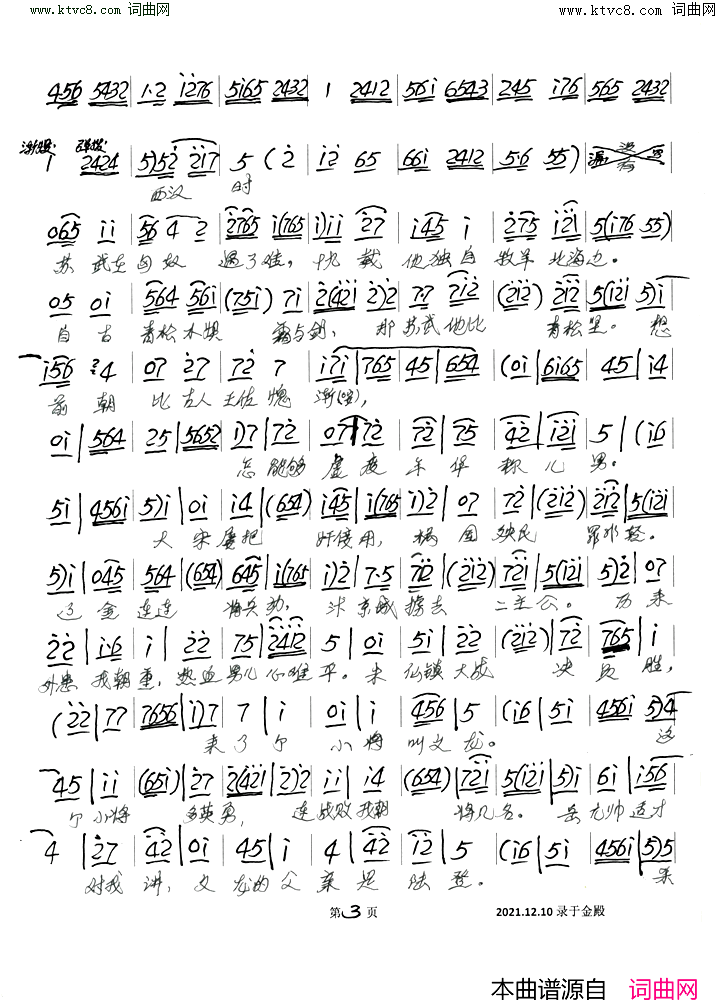 www.ktvc8.com 词曲网 www.ktvc8.com 词曲网
456 5432 | 1·2 1276 | 5165 2432 | 1 2412 | 561 6543 | 245 176 | 565 2432
渐慢
1 2424 | 5)52 217 | 5 (2 | 12 65 | 661 2412 | 5·6 55)
西汉 时
065 11 | 56 4 2 | 2765 1(765 | 1)11 27 | 145 1 | 275 121 | 5(176 55)
苏武在匈奴 遇了难，十九载 他独自牧羊北海边。
05 01 | 564 561 | (751) 71 | 2(421 2)2 | 77 712 | (212) 212 | 5(121 5)1
自古 青松不惧 霜与剑，那苏武他比 青松坚。想
156 4 | 07 27 | 72 7 | 171 | 765 | 45 | 654 | (01 | 6165 | 45 | 14
前朝 比古人 王佐愧
01 | 564 | 25 | 5652 | 1)7 | 72 | 07 | 72 | 72 | 75 | 42 | 121 | 5 | (16
怎能够虚度年华称儿男。
51 | 4561 | 5)1 | 01 | 14 | (654) | 145 | 1(765 | 1)2 | 07 | 72 | (212) | 212 | 5(121
大宋屡把 奸佞用，祸国殃民 罪不轻。
5)1 | 045 | 564 | (654) | 645 | 1(765 | 1)2 | 7·5 | 72 | (212) | 721 | 5(121 | 5)2 | 07
辽金连连 将兵动，汴京城掳去 二主公。历来
22 | 1·6 | 1 | 22 | 75 | 2412 | 5 | 01 | 51 | 22 | (212) | 72 | 765 | 1
外患我朝重，热血男儿心难平。朱仙镇大战 决 胜，
(22 | 77 | 7656 | 1)7 | 7 | 1 | 01 | 1 | 456 | 5 | (16 | 51 | 4561 | 5)4
来了个小将叫文龙。 这
45 | 11 | (651) | 27 | 2(421 | 2)2 | 11 | 14 | (654) | 721 | 5(121 | 5)1 | 61 | 156
个小将 多英勇， 连战败我朝 将几名。岳元帅适才
4 | 27 | 42 | 01 | 45 | 1 | 4 | 42 | 12 | 5 | (16 | 51 | 4561 | 5)5
对我讲，文龙的父亲是陆登。
第 3 页 2021.12.10 录于金殿
本曲谱源自 词曲网